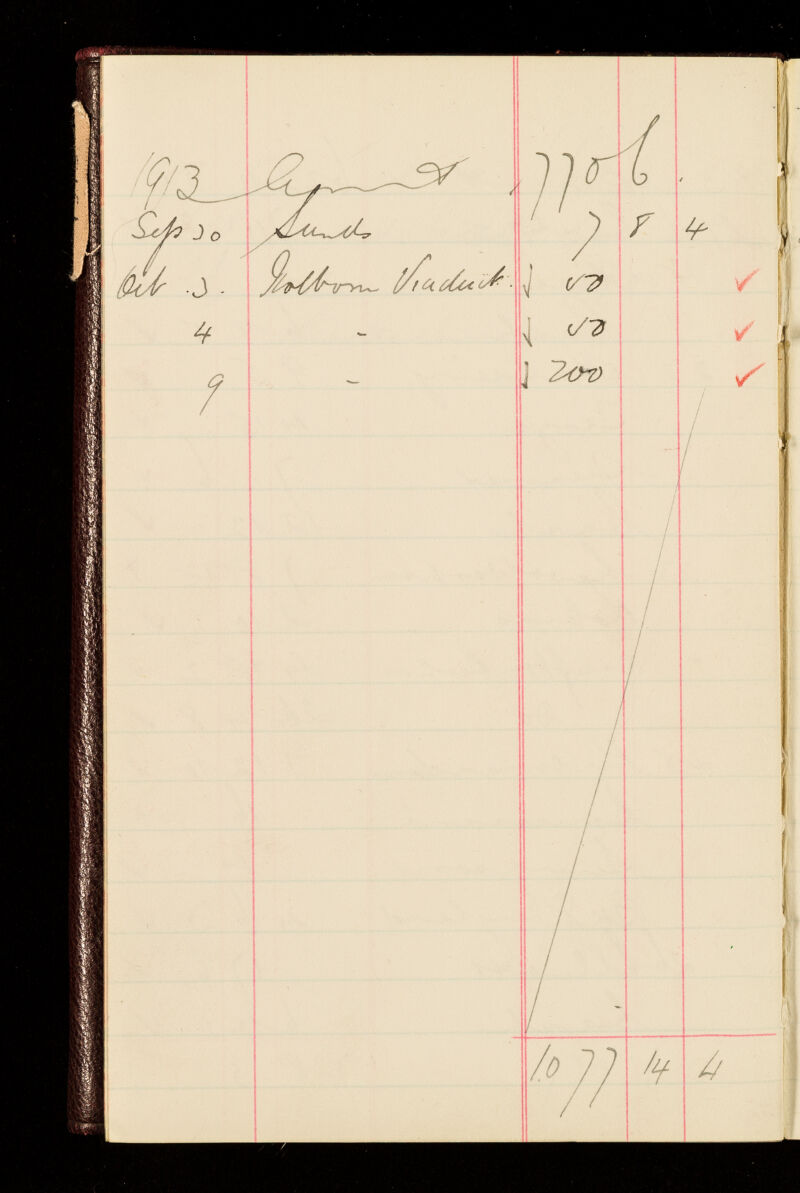 1913 770 6 .
Sep 30 Sunds 7 8 4
Oct . 3 . Holborn Viaduct . 50 ✓
4 - 50 ✓
9 - 200 ✓
1077 14 4